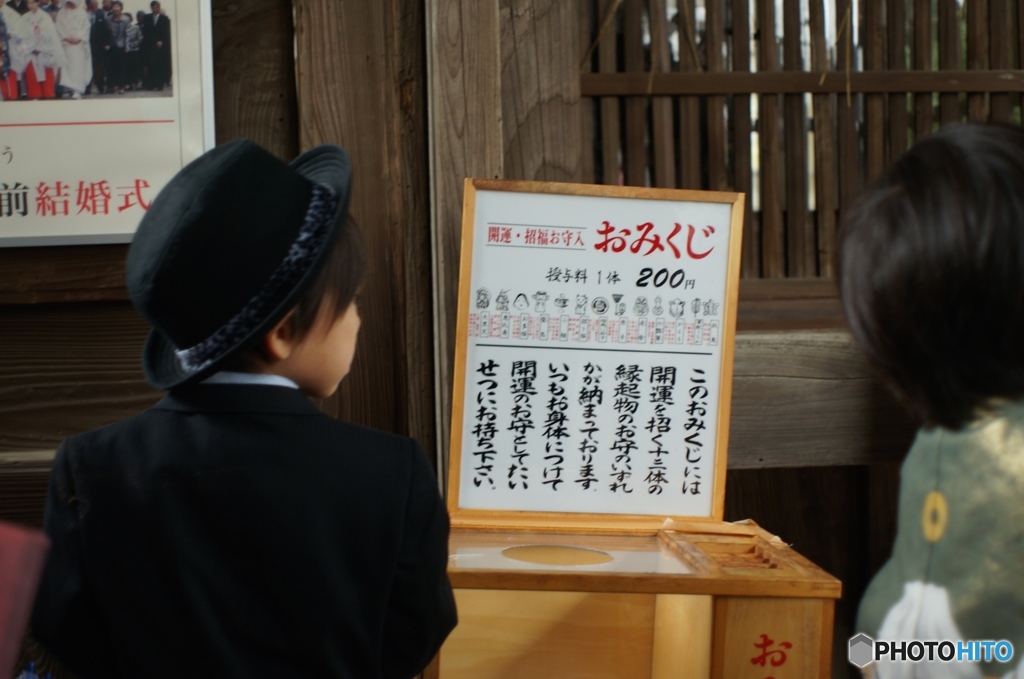 う
前結婚式
開運・招福お守入
おみくじ
授与料 1体 200円
このおみくじには
開運を招く十三体の
縁起物のお守のいずれ
かが納まっております。
いつもお身体につけて
開運のお守としてたい
せつにお持ち下さい。
お
PHOTOHITO